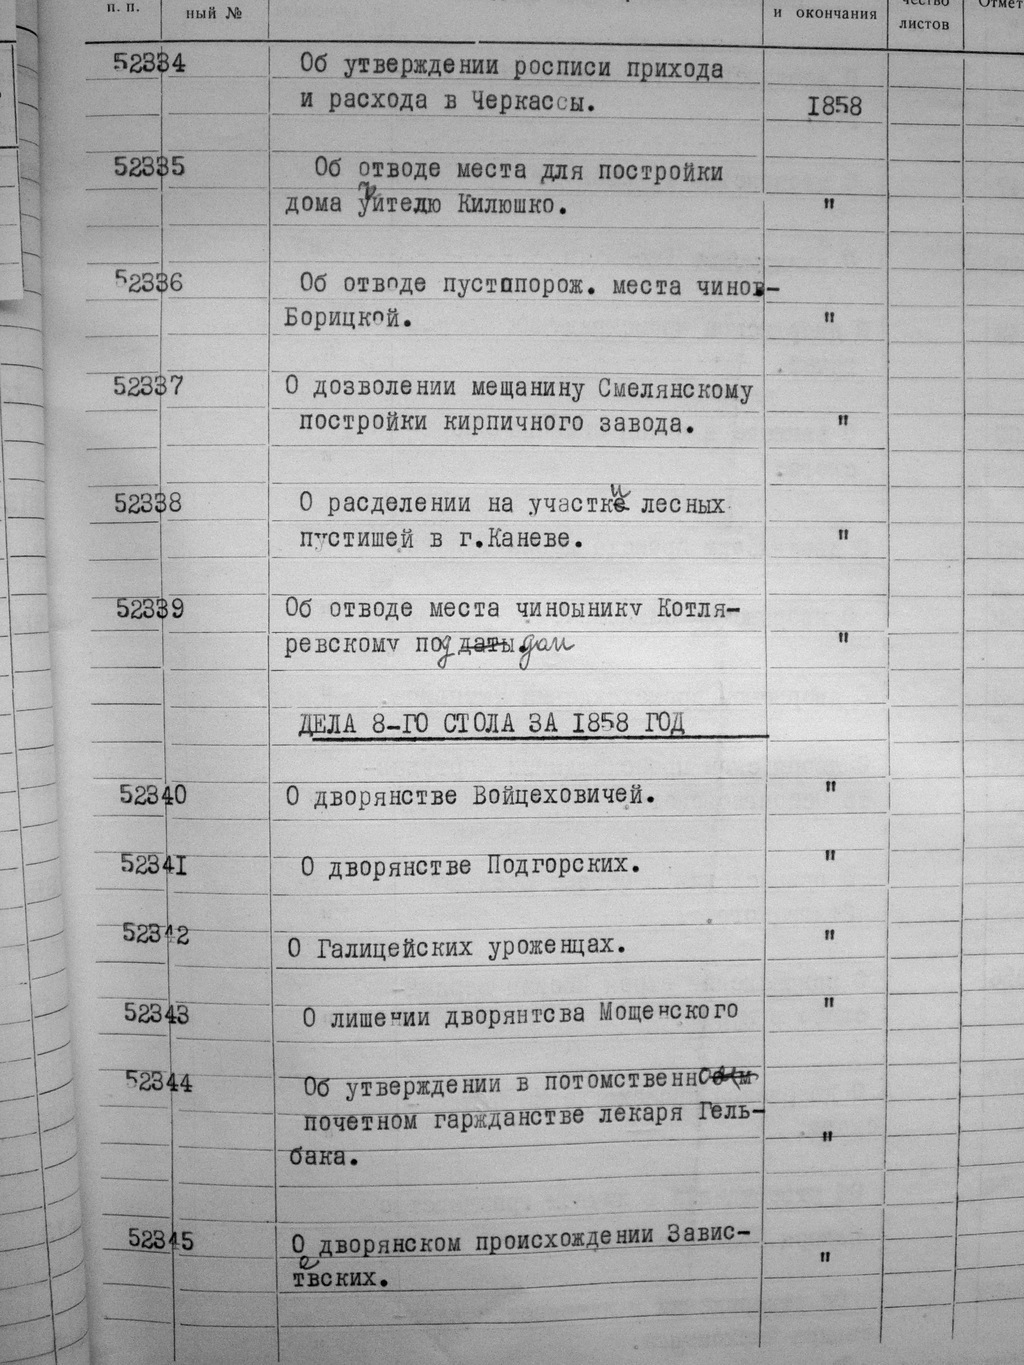 п. п.
ный №
и окончания
чество
листов
Отмет
52334 Об утверждении росписи прихода
и расхода в Черкассы. 1858
52335 Об отводе места для постройки
дома учителю Килюшко. "
52336 Об отводе пустопорож. места чинов-
Борицкой. "
52337 О дозволении мещанину Смелянскому
постройки кирпичного завода. "
52338 О расделении на участки лесных
пустишей в г.Каневе. "
52339 Об отводе места чиноынику Котля-
ревскому под даты. дом "
ДЕЛА 8-ГО СТОЛА ЗА 1858 ГОД
52340 О дворянстве Войцеховичей. "
52341 О дворянстве Подгорских. "
52342 О Галицейских уроженцах. "
52343 О лишении дворянтсва Мощенского "
52344 Об утверждении в потомственном
почетном гаржданстве лекаря Гель-
бака. "
52345 О дворянском происхождении Завис-
тевских. "